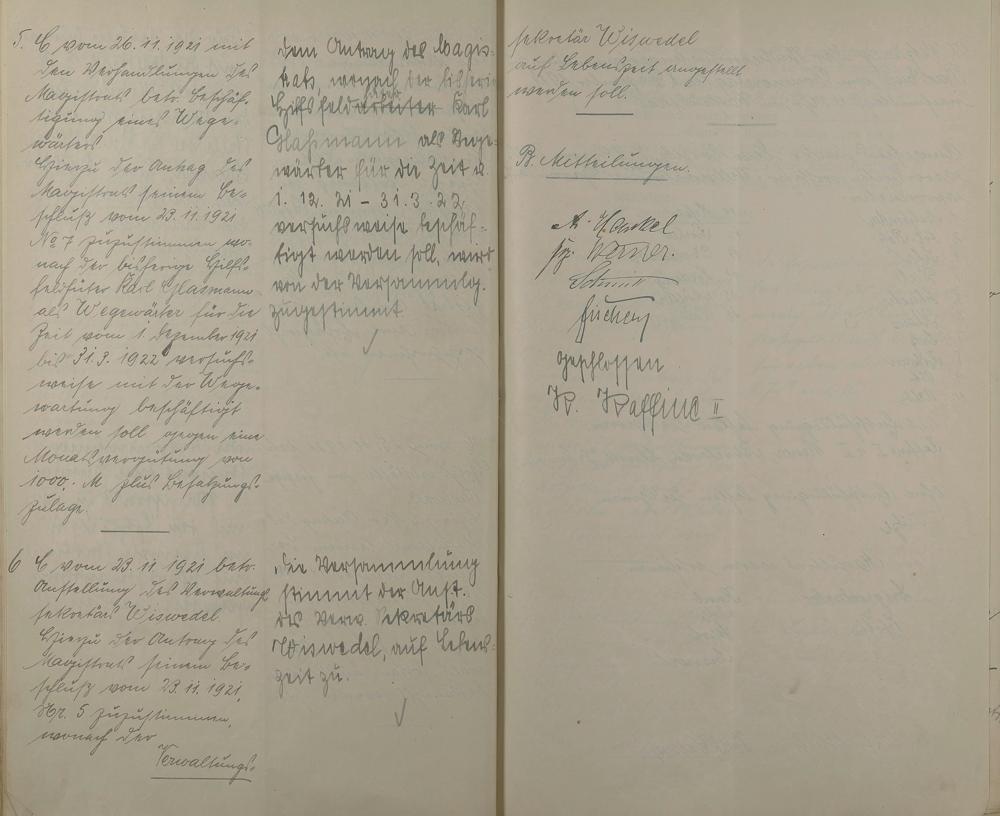 5. C vom 26.11.1921 mit
den Verhandlungen des
Magistrats betr. Beschäf-
tigung eines Wege-
wärters
Hierzu der Antrag des
Magistrats seinem Be-
schluß vom 23.11.1921
No 7 zuzustimmen wo-
nach der bisherige Hilfs-
feldhüter Karl Glasmann
als Wegewärter für die
Zeit vom 1. Dezember 1921
bis 31.3.1922 versuchs-
weise mit der Wege-
wartung beschäftigt
werden soll gegen eine
Monatsvergütung von
1000,- M plus Besatzungs-
zulage.
dem Antrag des Magis-
trats, wonach der bisherige
Hilfsfeldarbeiter Karl
Glaßmann als Wege-
wärter für die Zeit v.
1.12.21 - 31.3.22
versuchsweise beschäf-
tigt werden soll, wird
von der Versammlg.
zugestimmt
6 C vom 23.11.1921 betr.
Anstellung des Verwaltungs
sekretärs Wiswedel.
Hierzu der Antrag des
Magistrats seinem Be-
schluß vom 23.11.1921,
Nr. 5 zuzustimmen,
wonach der
Verwaltungs-
die Versammlung
stimmt der Anst.
des Verw. Sekretärs
Wiswedel, auf Lebens-
zeit zu.
sekretär Wiswedel
auf Lebenszeit angestellt
werden soll.
B. Mitteilungen.
Werner.
Schmitt
geschlossen